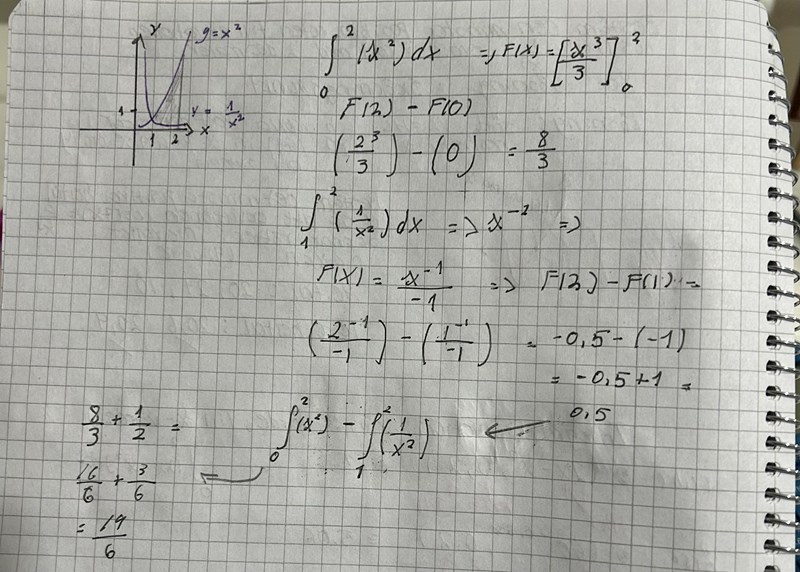 y
y = x²
1
y = 1/x²
1 2 x
∫₀² (x²) dx => F(x) = [x³/3]₀²
F(2) - F(0)
(2³/3) - (0) = 8/3
∫₁² (1/x²) dx => x⁻² =>
F(x) = x⁻¹/-1 => F(2) - F(1) =
(2⁻¹/-1) - (1⁻¹/-1) = -0,5 - (-1)
= -0,5 + 1 =
0,5
∫₀² (x²) - ∫₁² (1/x²)
8/3 + 1/2 =
16/6 + 3/6
= 19/6